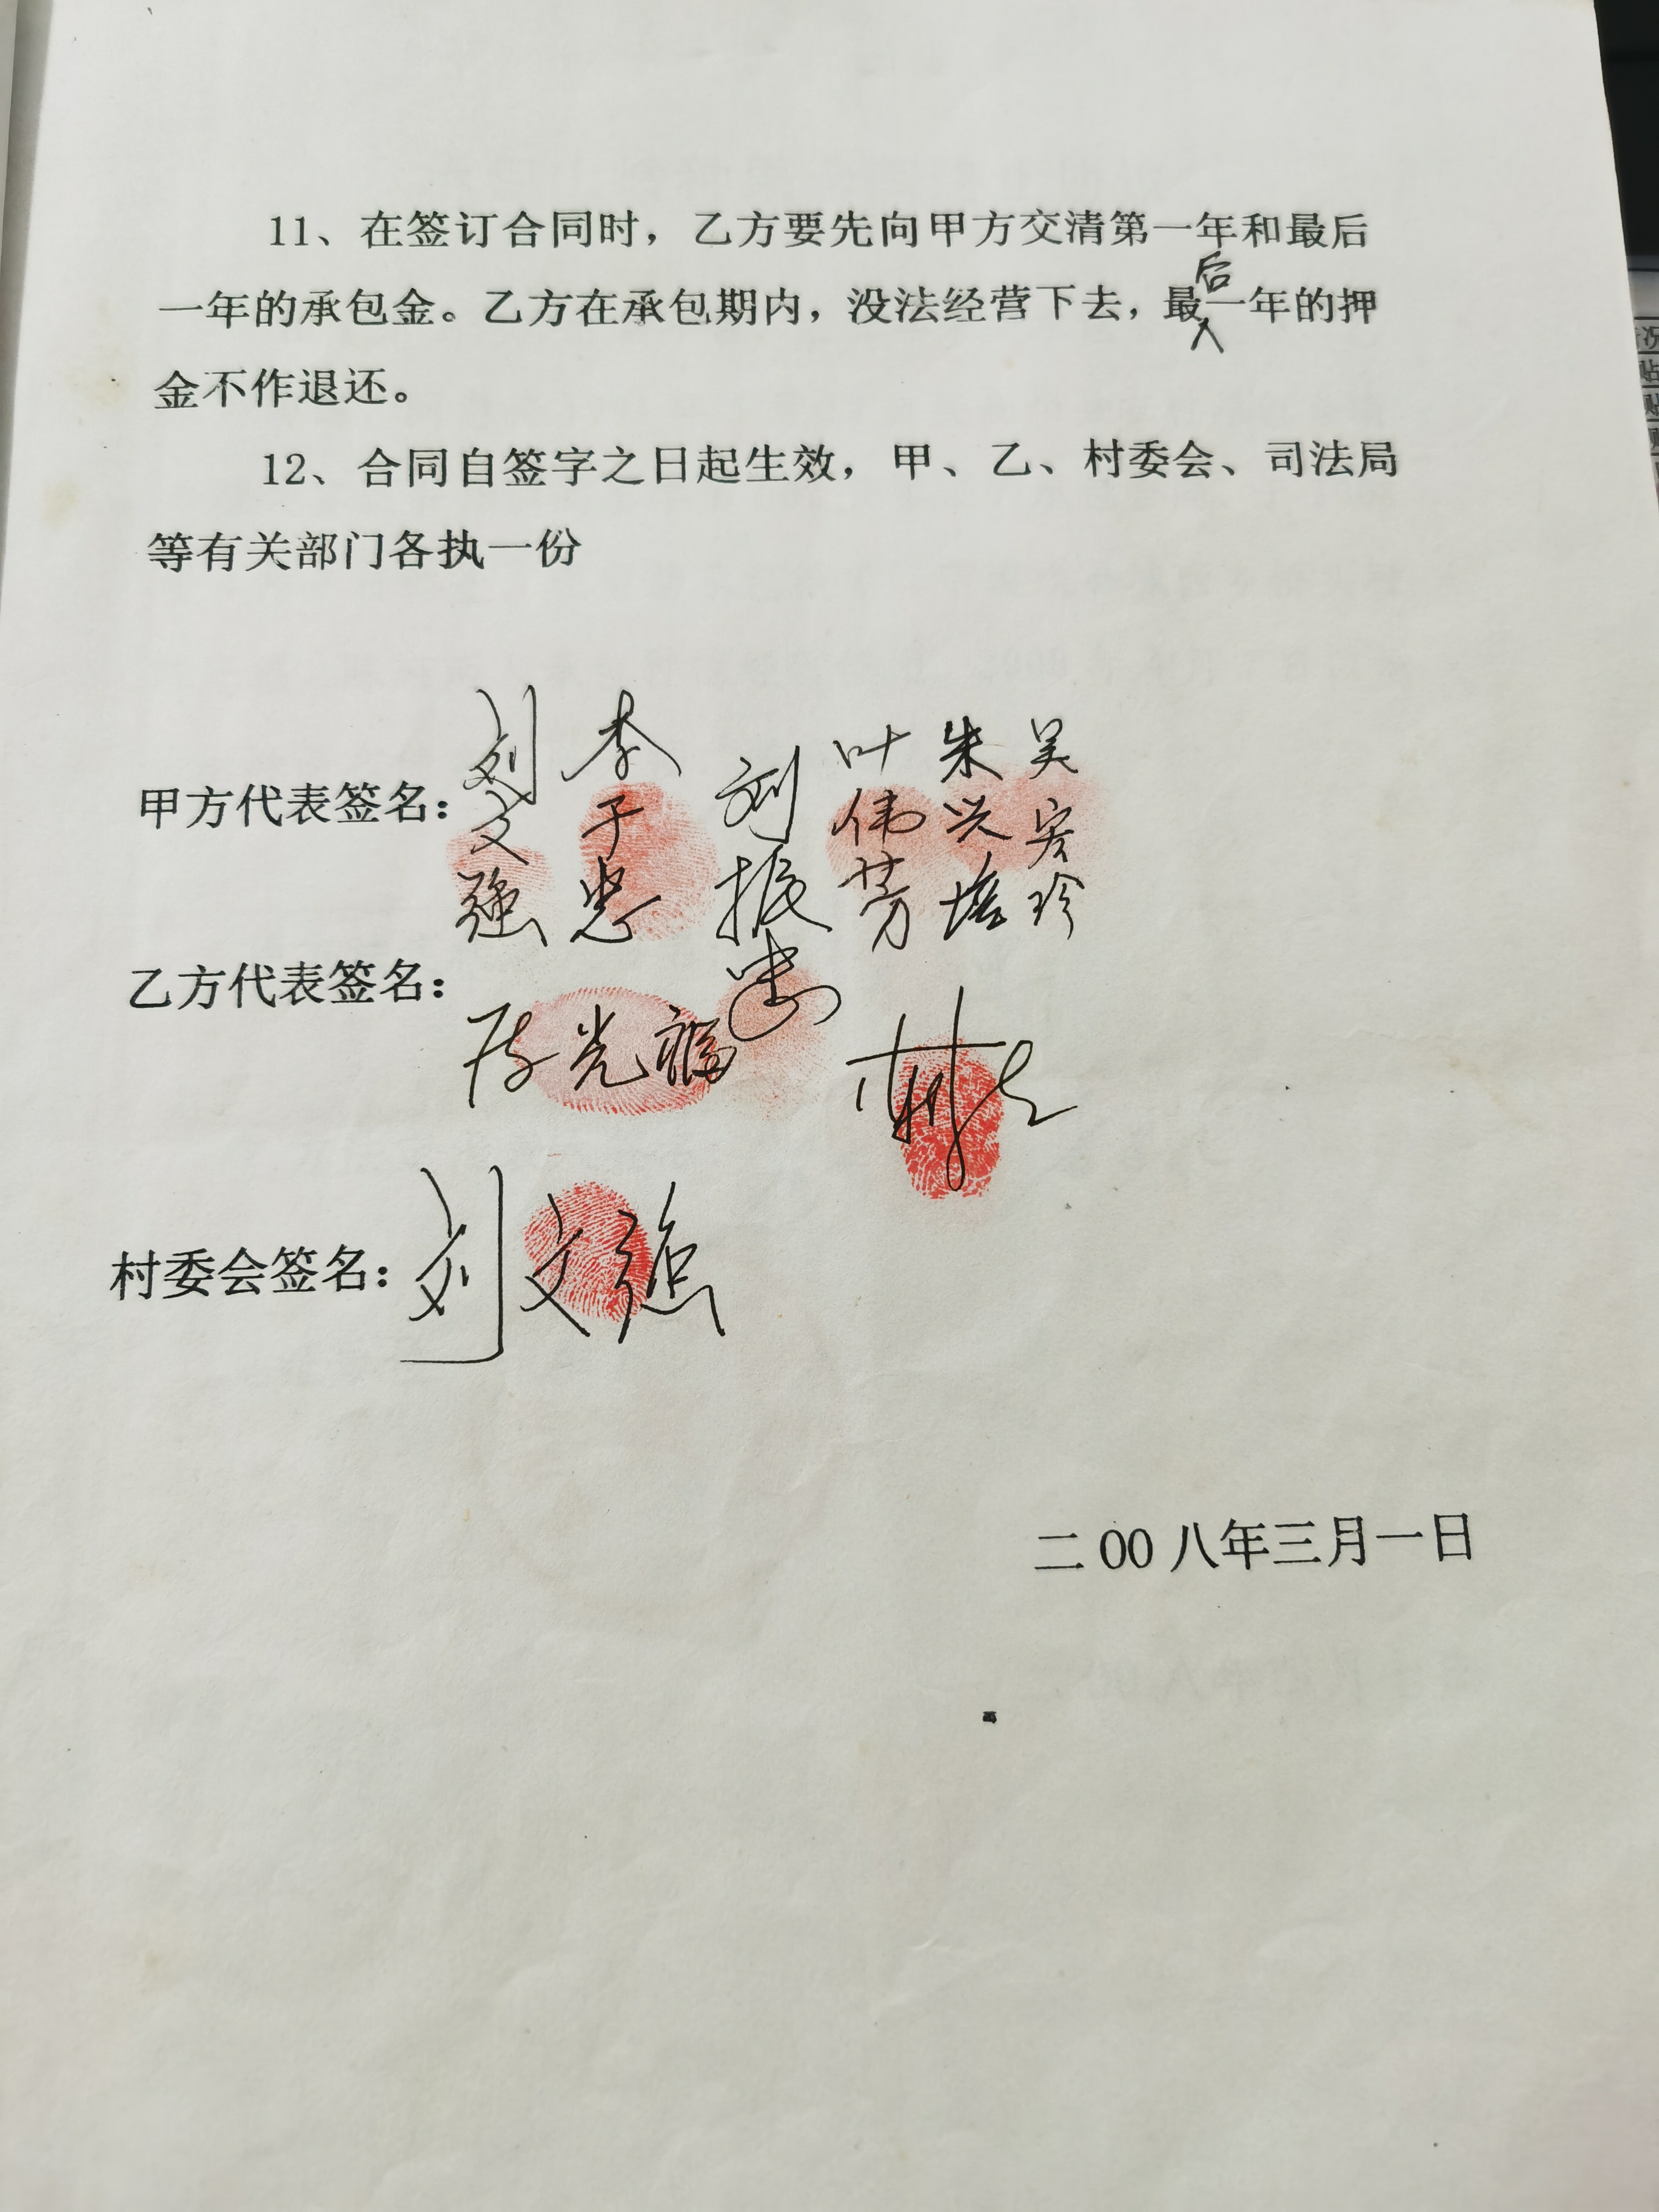 11、在签订合同时，乙方要先向甲方交清第一年和最后
一年的承包金。乙方在承包期内，没法经营下去，最后一年的押
金不作退还。
12、合同自签字之日起生效，甲、乙、村委会、司法局
等有关部门各执一份
甲方代表签名：刘文强 李子忠 刘振忠 叶伟芳 朱兴培 吴宏珍
乙方代表签名：
陈光福
村委会签名：刘文强
二00八年三月一日